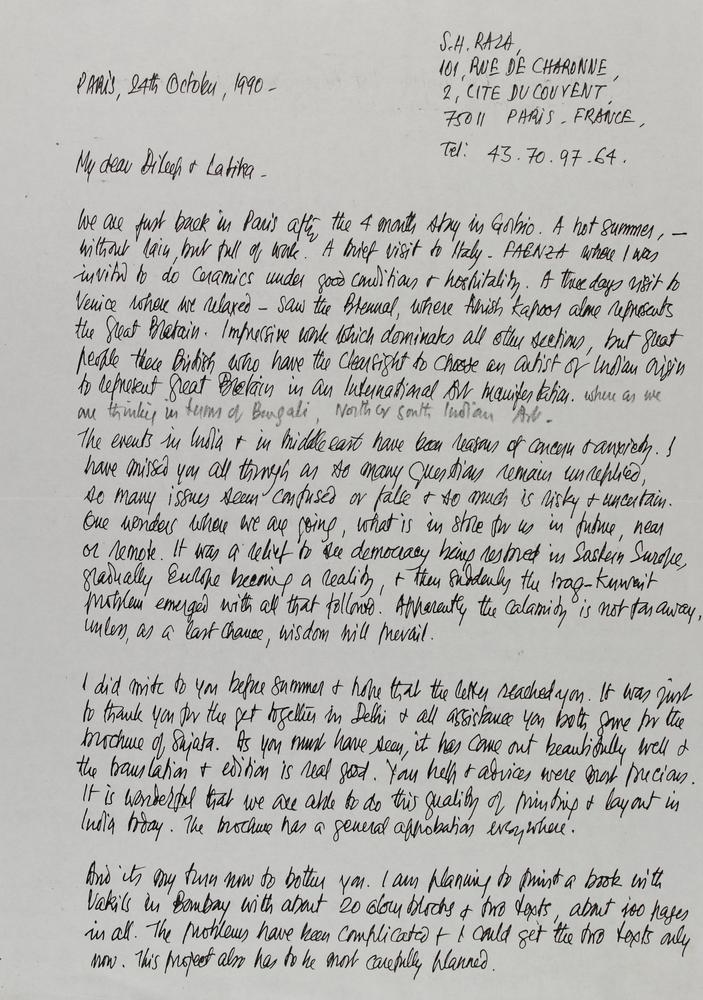 S.H. RAZA,
101, RUE DE CHARONNE,
2, CITE DU COUVENT,
75011 PARIS - FRANCE,
Tel: 43.70.97.64.
PARIS, 24th October, 1990 -
My dear Dileep & Latika -
We are just back in Paris after the 4 month stay in Gorbio. A hot summer, —
without rain, but full of work. A brief visit to Italy - FAENZA where I was
invited to do Ceramics under good conditions & hospitality. A three days visit to
Venice where we relaxed - saw the Biennal, where Anish Kapoor alone represents
the Great Bretain. Impressive work which dominates all other sections, but great
people these British who have the clearsight to choose an artist of Indian Origin
to represent Great Bretain in an International Art manifestation. where as we
are thinking in terms of Bengali, North or South Indian Art -
The events in India & in Middle east have been reasons of concern & anxiety. I
have missed you all through as so many questions remain unreplied,
so many issues seem confused or false & so much is risky & uncertain.
One wonders where we are going, what is in store for us in future, near
or remote. It was a relief to see democracy being restored in Eastern Europe,
gradually Europe becoming a reality, & then suddenly the Iraq-Kuwait
problem emerged with all that followed. Apparently the calamity is not far away,
unless, as a last chance, wisdom will prevail.
I did write to you before summer & hope that the letter reached you. It was just
to thank you for the get together in Delhi & all assistance you both gave for the
brochure of Sujata. As you must have seen, it has come out beautifully well &
the translation & edition is real good. Your help & advices were most precious.
It is wonderful that we are able to do this quality of printing & layout in
India today. The brochure has a general approbation everywhere.
And its my turn now to bother you. I am planning to print a book with
Vakils in Bombay with about 20 colour blocks & two texts, about 100 pages
in all. The problems have been complicated & I could get the two texts only
now. This project also has to be most carefully planned.